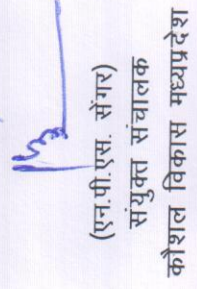 (एन.पी.एस. सेंगर)
संयुक्त संचालक
कौशल विकास मध्यप्रदेश